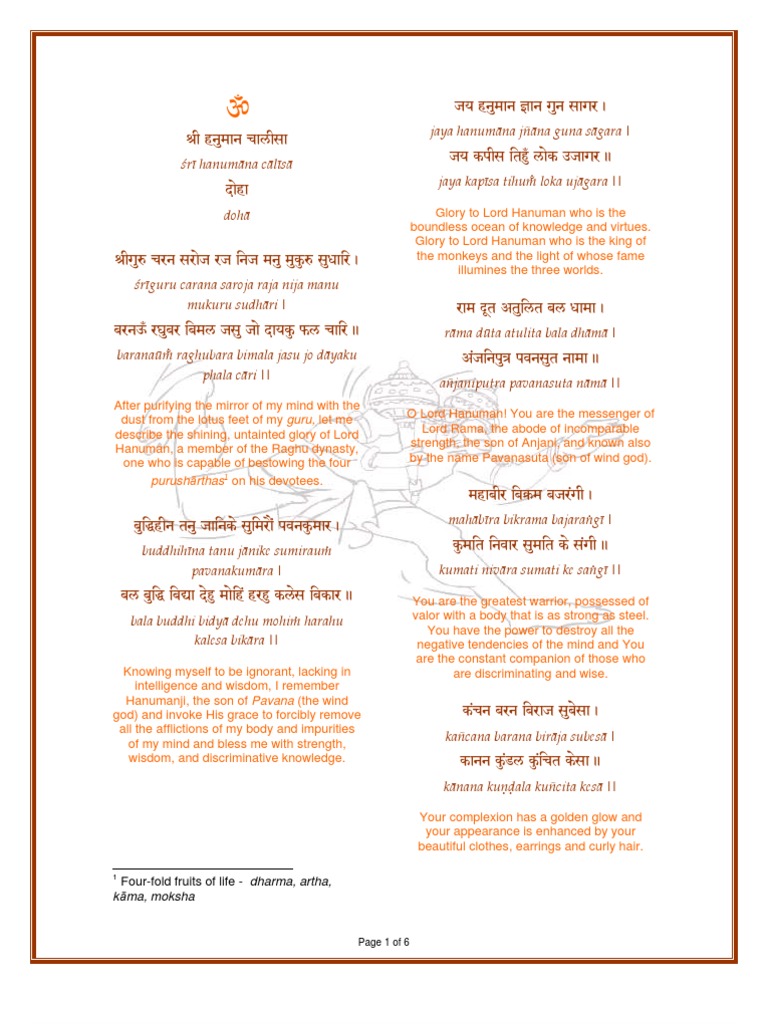 ॐ
श्री हनुमान चालीसा
śrī hanumāna cālīsā
दोहा
dohā
श्रीगुरु चरन सरोज रज निज मनु मुकुरु सुधारि ।
śrīguru carana saroja raja nija manu
mukuru sudhāri |
बरनऊँ रघुबर बिमल जसु जो दायकु फल चारि ॥
baranaūm̐ raghubara bimala jasu jo dāyaku
phala cāri ||
After purifying the mirror of my mind with the
dust from the lotus feet of my guru, let me
describe the shining, untainted glory of Lord
Hanuman, a member of the Raghu dynasty,
one who is capable of bestowing the four
purushārthas1 on his devotees.
बुद्धिहीन तनु जानिके सुमिरौं पवनकुमार ।
buddhihīna tanu jānike sumirauṁ
pavanakumāra |
बल बुद्धि बिद्या देहु मोहिं हरहु कलेस बिकार ॥
bala buddhi bidyā dehu mohiṁ harahu
kalesa bikāra ||
Knowing myself to be ignorant, lacking in
intelligence and wisdom, I remember
Hanumanji, the son of Pavana (the wind
god) and invoke His grace to forcibly remove
all the afflictions of my body and impurities
of my mind and bless me with strength,
wisdom, and discriminative knowledge.
1 Four-fold fruits of life - dharma, artha,
kāma, moksha
जय हनुमान ज्ञान गुन सागर ।
jaya hanumāna jñāna guna sāgara |
जय कपीस तिहुँ लोक उजागर ॥
jaya kapīsa tihum̐ loka ujāgara ||
Glory to Lord Hanuman who is the
boundless ocean of knowledge and virtues.
Glory to Lord Hanuman who is the king of
the monkeys and the light of whose fame
illumines the three worlds.
राम दूत अतुलित बल धामा ।
rāma dūta atulita bala dhāmā |
अंजनिपुत्र पवनसुत नामा ॥
añjaniputra pavanasuta nāmā ||
O Lord Hanuman! You are the messenger of
Lord Rama, the abode of incomparable
strength, the son of Anjani, and known also
by the name Pavanasuta (son of wind god).
महाबीर बिक्रम बजरंगी ।
mahābīra bikrama bajaraṅgī |
कुमति निवार सुमति के संगी ॥
kumati nivāra sumati ke saṅgī ||
You are the greatest warrior, possessed of
valor with a body that is as strong as steel.
You have the power to destroy all the
negative tendencies of the mind and You
are the constant companion of those who
are discriminating and wise.
कंचन बरन बिराज सुबेसा ।
kañcana barana birāja subesā |
कानन कुंडल कुंचित केसा ॥
kānana kuṇḍala kuñcita kesā ||
Your complexion has a golden glow and
your appearance is enhanced by your
beautiful clothes, earrings and curly hair.
Page 1 of 6